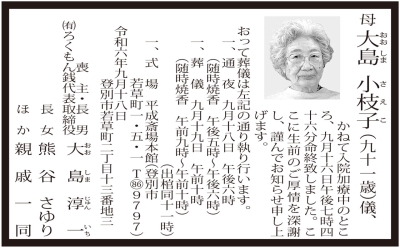 母 大島 小枝子(九十一歳)儀、
おおしま さえこ
かねて入院加療中のとこ
ろ、九月十六日午後七時四
十六分命終致しました。こ
こに生前のご厚情を深謝
し、謹んでお知らせ申し上
げます。
おって葬儀は左記の通り執り行います。
一、通 夜 九月十八日 午後六時
(随時焼香 午後五時〜午後六時)
一、葬 儀 九月十九日 午前十時
(随時焼香 午前九時〜午前十時)
(出棺同十一時)
一、式 場 平成斎場本館(登別市
若草町一・五・一 T86 9797)
令和六年九月十八日
登別市若草町二丁目十三番地三
㈲ろくもん銭代表取締役
喪主・長男 大島淳一
おお しま じゅん いち
長女 熊谷さゆり
ほか 親戚一同